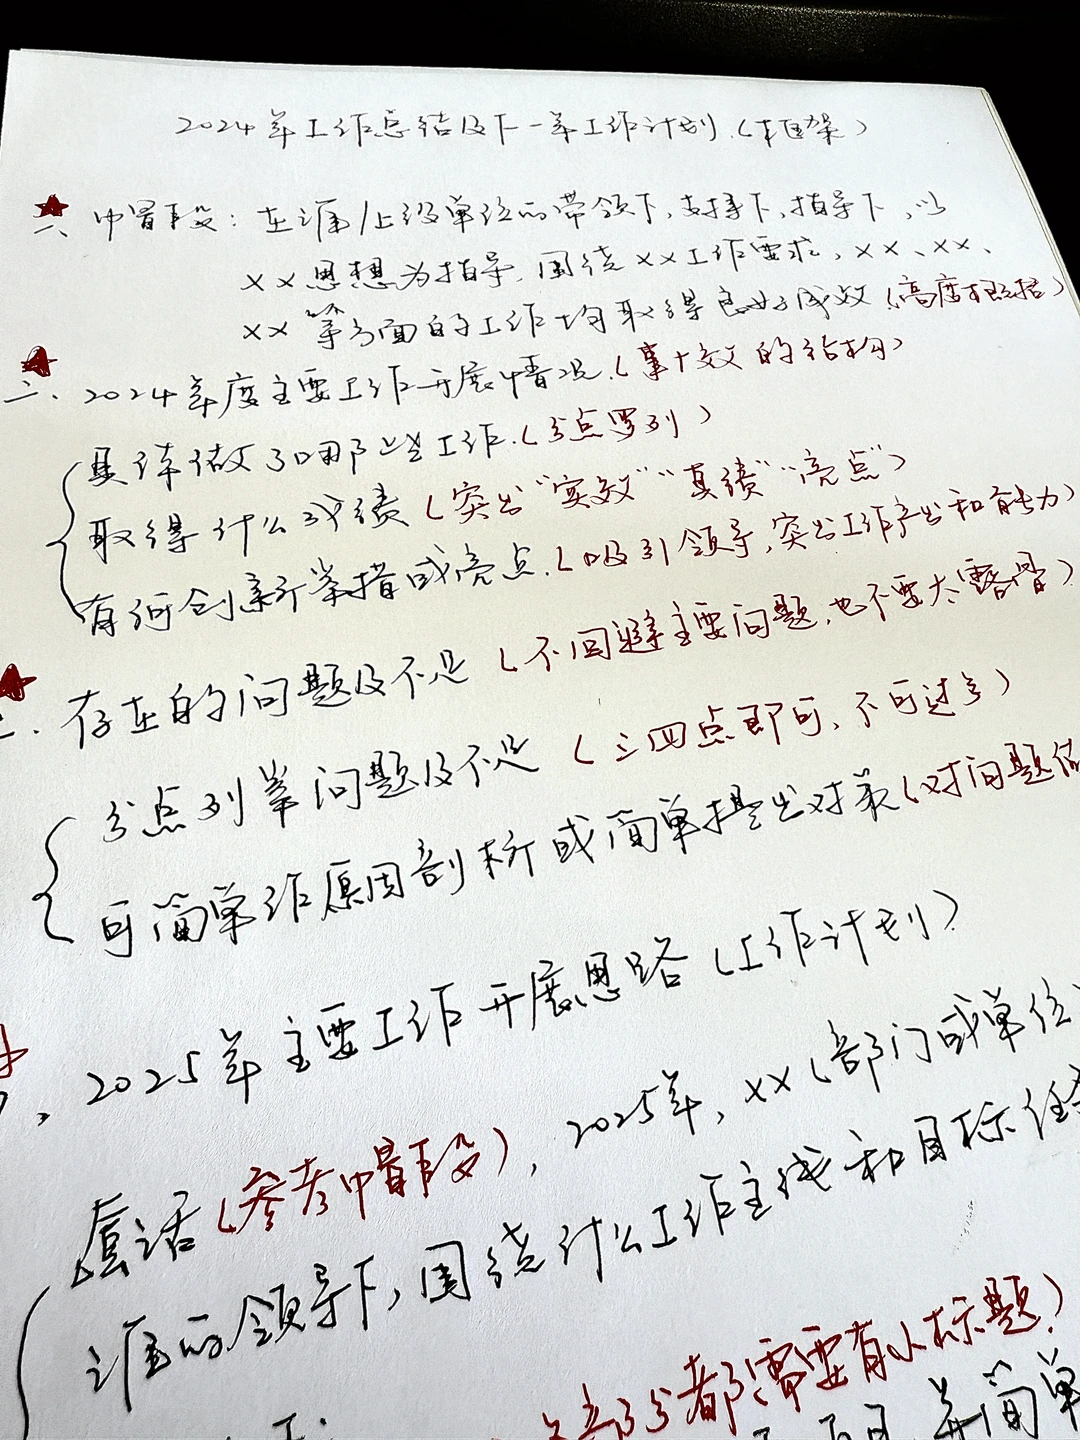 2024年工作总结及下一年工作计划（框架）
一、帽段：在谁/上级单位的带领下，支持下，指导下，以
××思想为指导，围绕××工作要求，××、××、
××等方面的工作均取得良好成效（高度概括）
二、2024年度主要工作开展情况（事+效的结构）
具体做了哪些工作（分点罗列）
取得什么成绩（突出“实效”“真绩”“亮点”）
有何创新举措或亮点（吸引领导，突出工作产出和能力）
三、存在的问题及不足（不回避主要问题，也不要太露骨）
分点列举问题及不足（三四点即可，不可过多）
可简单作原因剖析或简单提出对策（对问题
、2025年主要工作开展思路（工作计划）
套话（参考帽段），2025年，××（部门或单位
谁的领导下，围绕什么工作主线和目标任务
部分都需要有小标题）
并简单